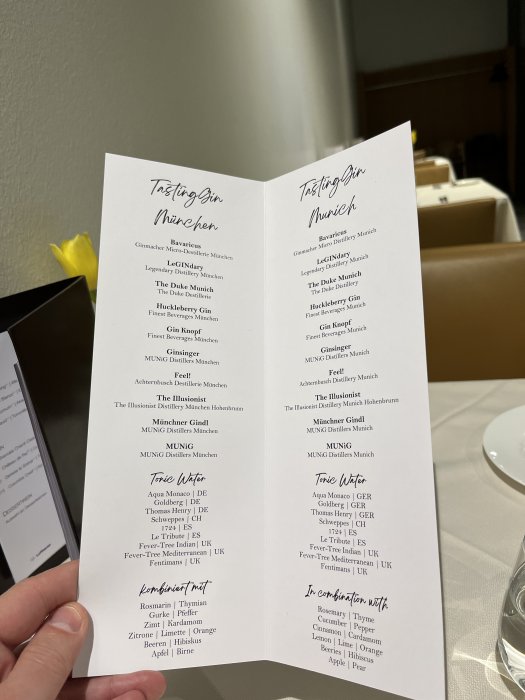 TastingGin
München
Bavaricus
Ginmacher Micro-Destillerie München
LeGINdary
Legendary Distillery München
The Duke Munich
The Duke Destillerie
Huckleberry Gin
Finest Beverages München
Gin Knopf
Finest Beverages München
Ginsinger
MUNiG Distillers München
Feel!
Achternbusch Destillerie München
The Illusionist
The Illusionist Distillery München Hohenbrunn
Münchner Gindl
MUNiG Distillers München
MUNiG
MUNiG Distillers München
Tonic Water
Aqua Monaco | DE
Goldberg | DE
Thomas Henry | DE
Schweppes | CH
1724 | ES
Le Tribute | ES
Fever-Tree Indian| UK
Fever-Tree Mediterranean | UK
Fentimans | UK
kombiniert mit
Rosmarin | Thymian
Gurke | Pfeffer
Zimt | Kardamom
Zitrone | Limette | Orange
Beeren | Hibiskus
Apfel | Birne
TastingGin
Munich
Bavaricus
Ginmacher Micro Distillery Munich
LeGINdary
Legendary Distillery Munich
The Duke Munich
The Duke Distillery
Huckleberry Gin
Finest Beverages Munich
Gin Knopf
Finest Beverages Munich
Ginsinger
MUNiG Distillers Munich
Feel!
Achternbusch Distillery Munich
The Illusionist
The Illusionist Distillery Munich Hohenbrunn
Münchner Gindl
MUNiG Distillers Munich
MUNiG
MUNiG Distillers Munich
Tonic Water
Aqua Monaco | GER
Goldberg | GER
Thomas Henry | GER
Schweppes | CH
1724 | ES
Le Tribute | ES
Fever-Tree Indian | UK
Fever-Tree Mediterranean | UK
Fentimans | UK
In combination with
Rosemary | Thyme
Cucumber | Pepper
Cinnamon | Cardamom
Lemon | Lime | Orange
Berries | Hibiscus
Apple | Pear